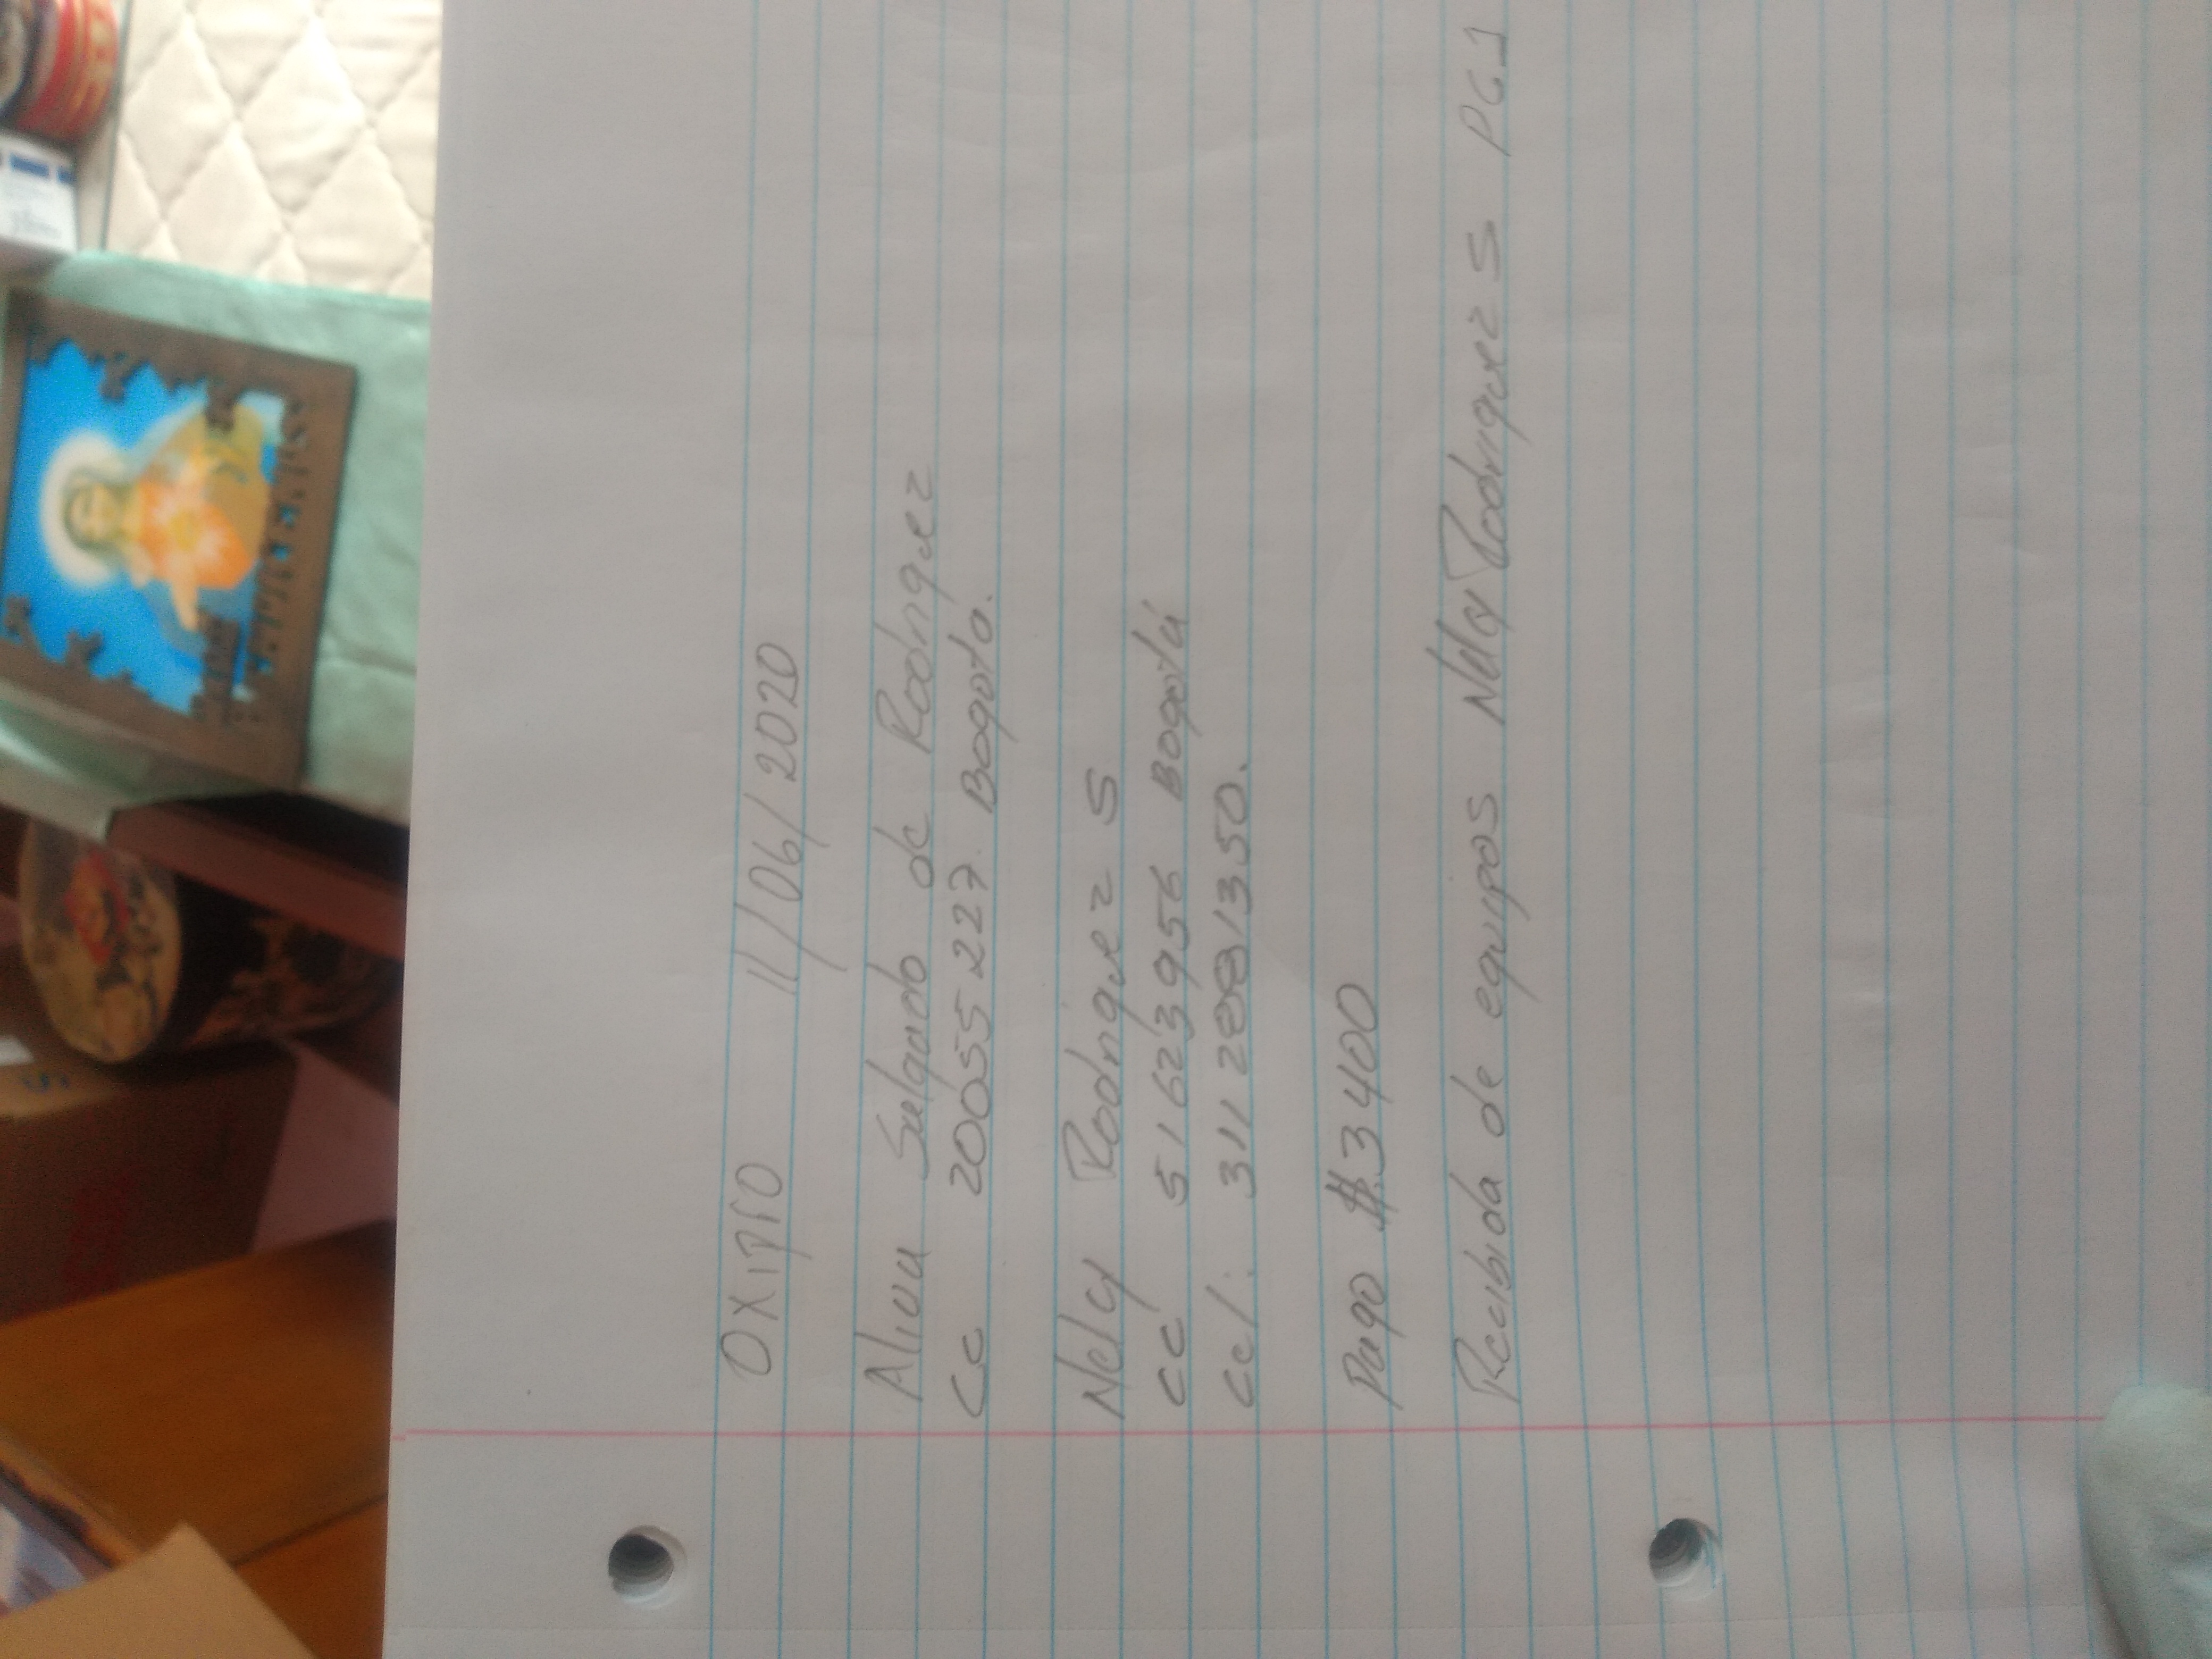 Oxipro 11/06/2020
Aliva Salgado de Rodriguez
C.c 20055227. Bogotá.
Nely Rodriguez S
cc 51623956 Bogotá
cel: 3112881350.
Pago $.3400
Recibida de equipos Nely Rodriguez S PG1